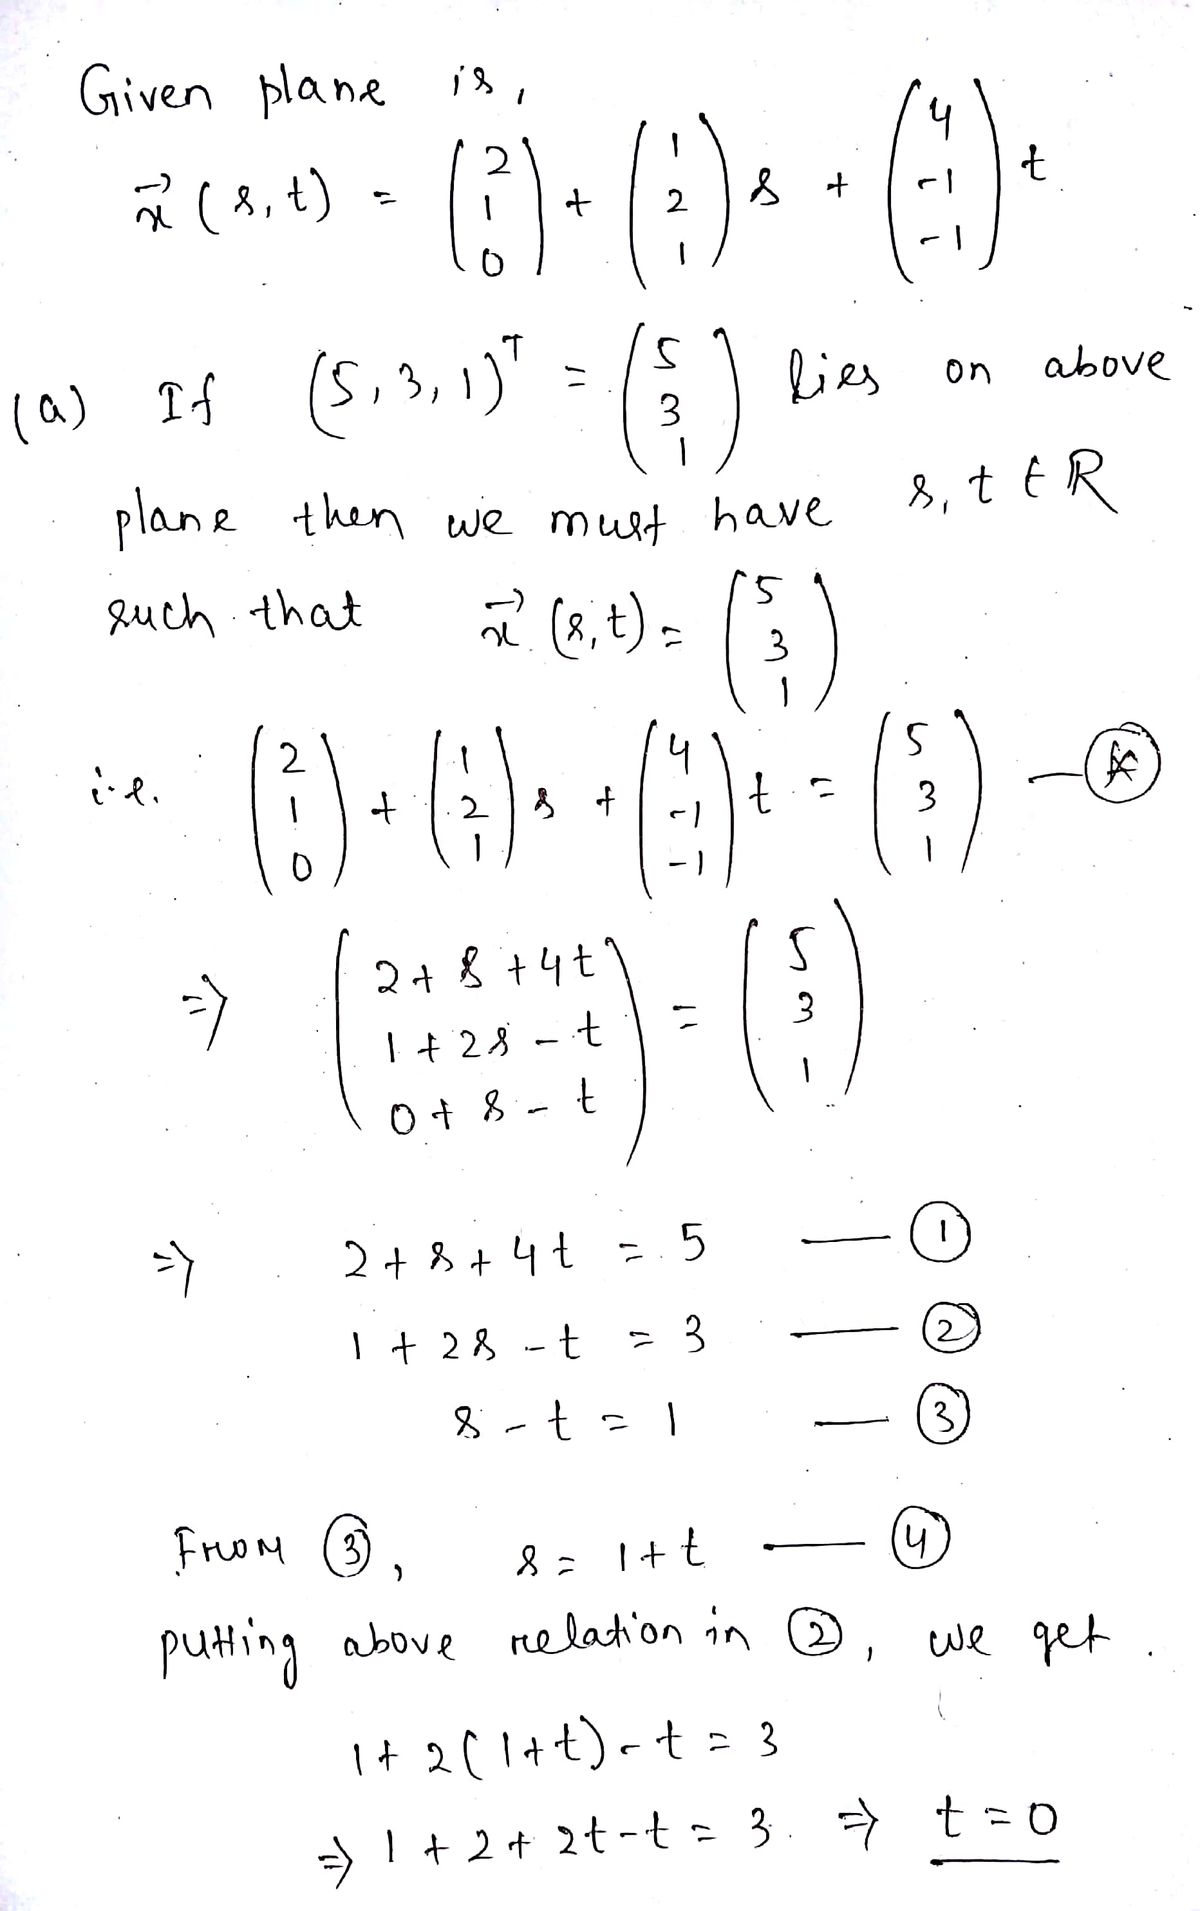 Given plane is,
x⃗ (s, t) = (2 1 0) + (1 2 1) s + (4 -1 -1) t
(a) If (5, 3, 1)ᵀ = (5 3 1) lies on above
plane then we must have s, t ∈ R
such that x⃗ (s, t) = (5 3 1)
i.e. (2 1 0) + (1 2 1) s + (4 -1 -1) t = (5 3 1) — ⊛
⇒ (2 + s + 4t 1 + 2s - t 0 + s - t) = (5 3 1)
⇒ 2 + s + 4t = 5 — ①
1 + 2s - t = 3 — ②
s - t = 1 — ③
From ③, s = 1 + t — ④
putting above relation in ②, we get.
1 + 2(1+t) - t = 3
⇒ 1 + 2 + 2t - t = 3. ⇒ t = 0